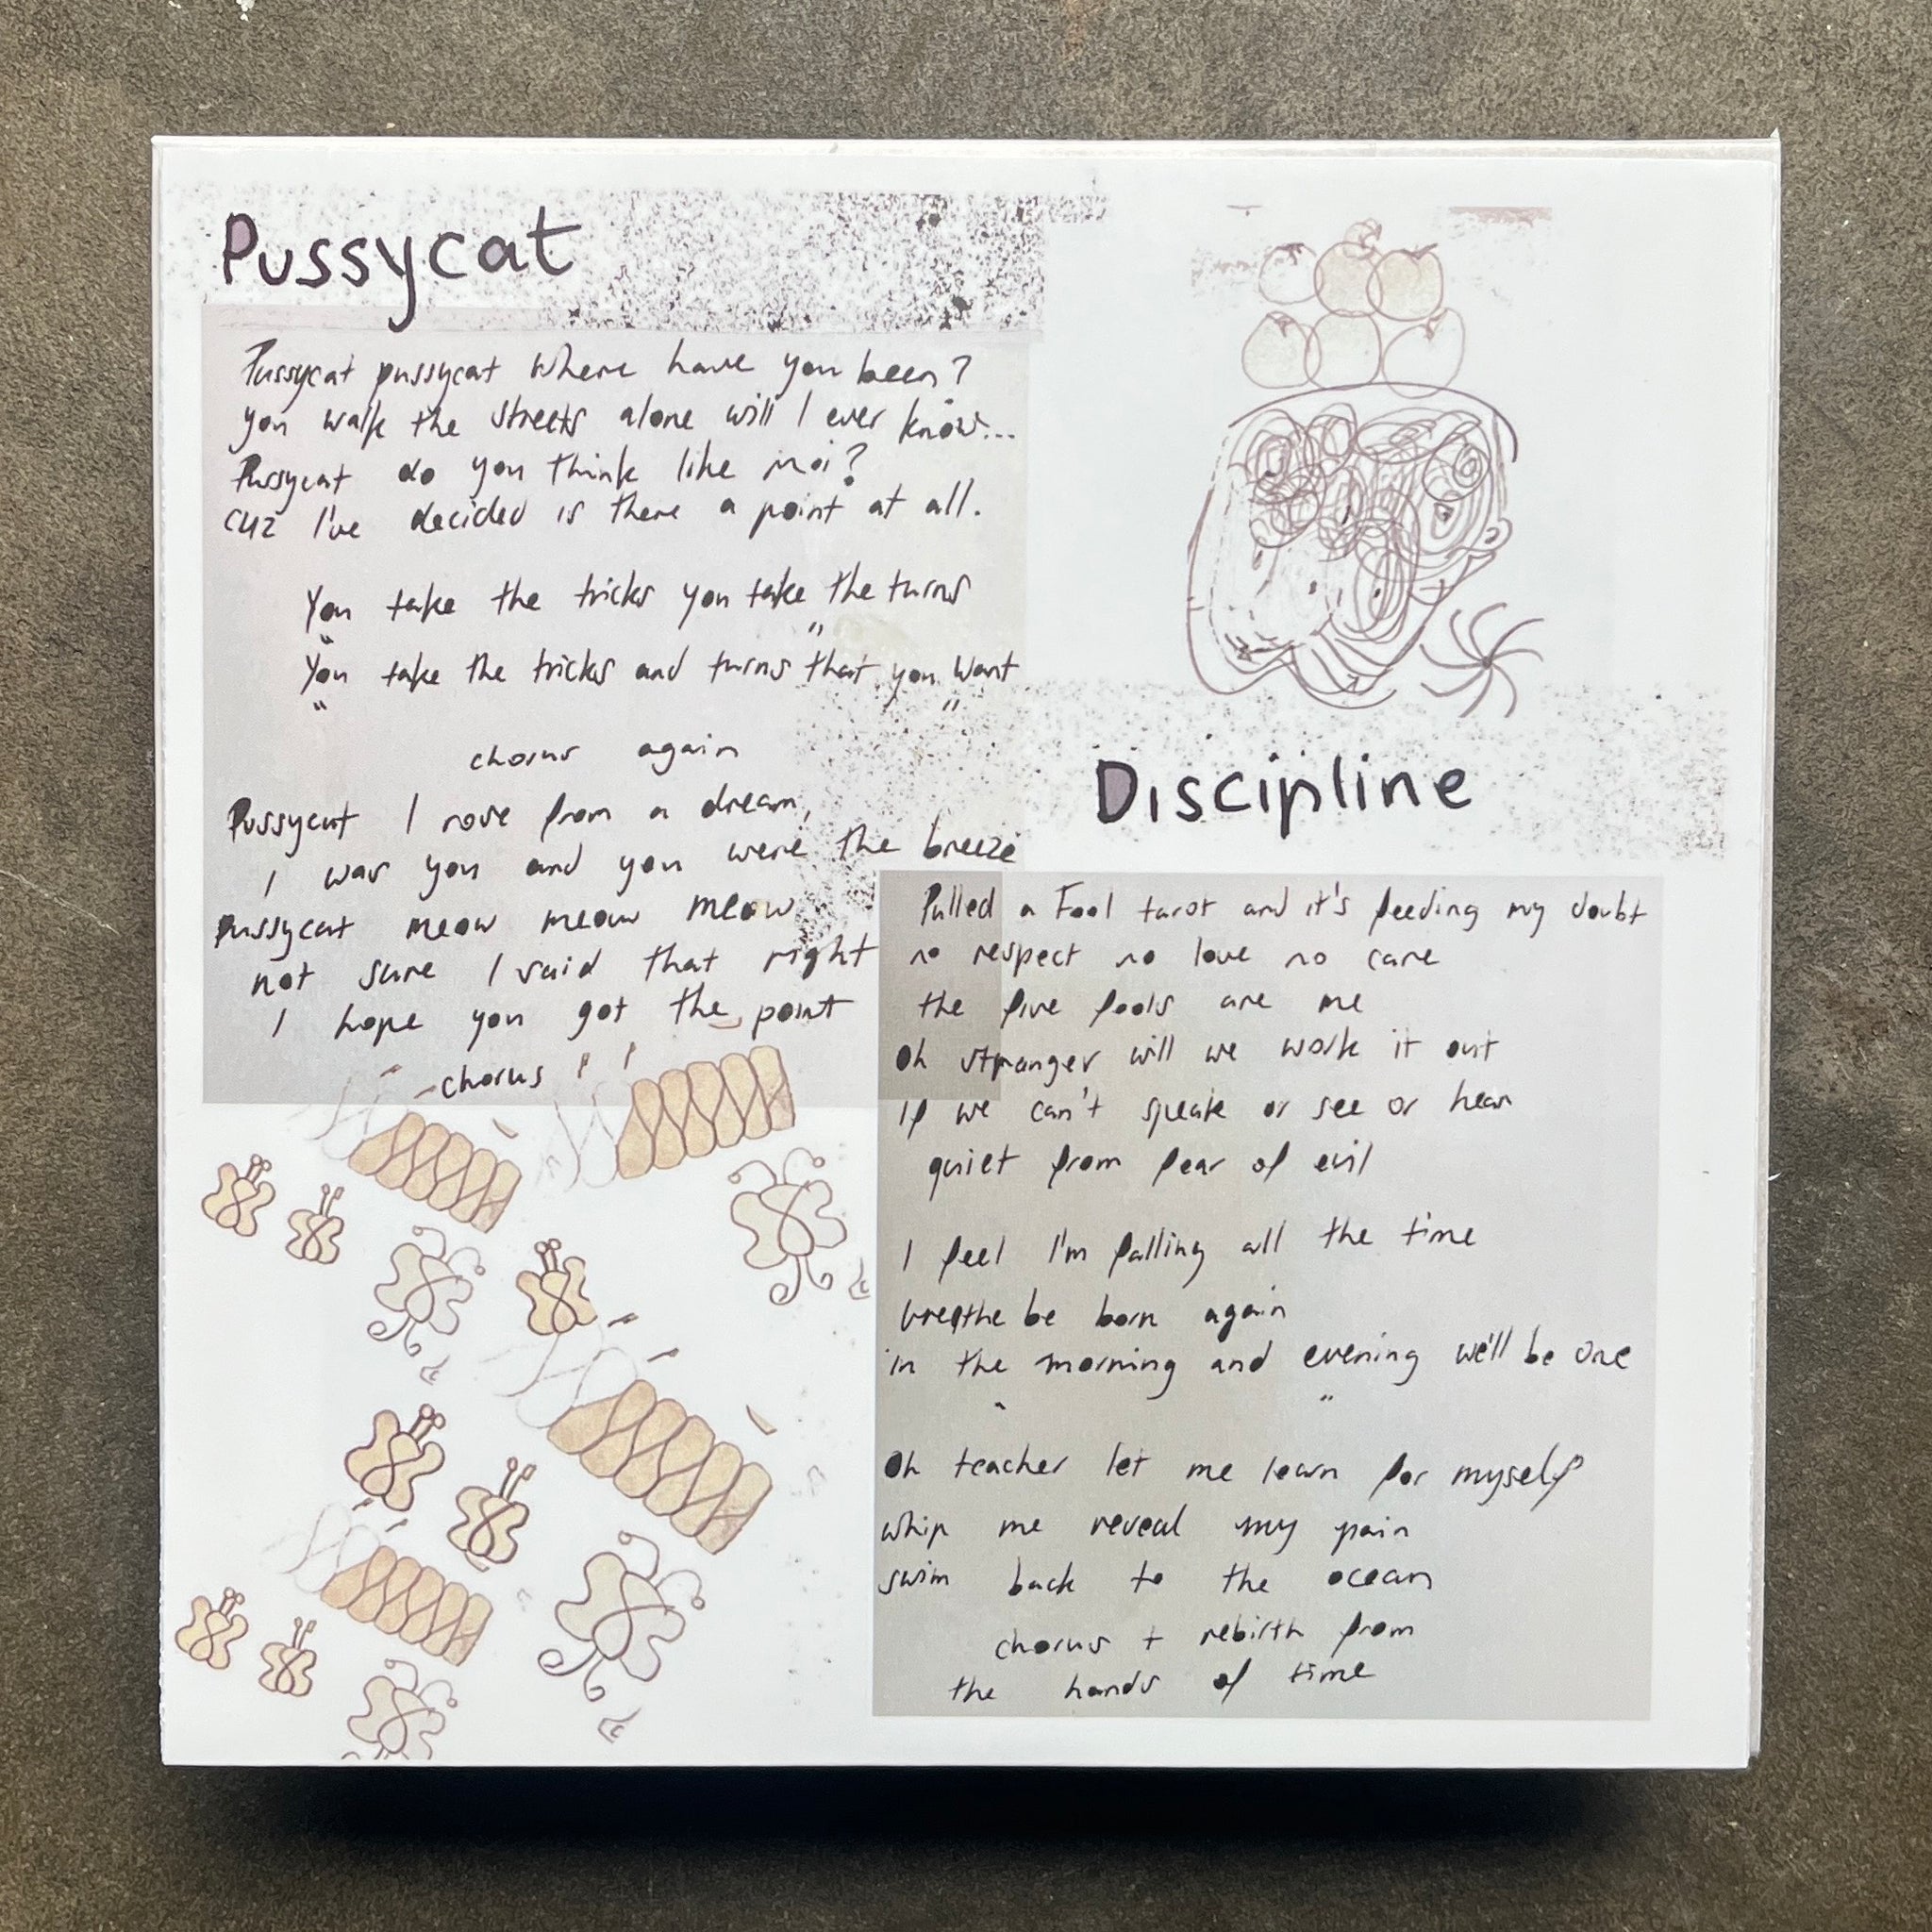 Pussycat
Pussycat pussycat where have you been?
you walk the streets alone will I ever know...
Pussycat do you think like moi?
cuz I've decided is there a point at all.
You take the tricks you take the turns
" "
You take the tricks and turns that you want
" "
chorus again
Pussycat I rose from a dream,
I was you and you were the breeze
Pussycat meow meow meow
not sure I said that right
I hope you got the point
chorus
Discipline
Pulled a Fool tarot and it's feeding my doubt
no respect no love no care
the five fools are me
Oh stranger will we work it out
If we can't speak or see or hear
quiet from fear of evil
I feel I'm falling all the time
breathe be born again
in the morning and evening we'll be one
" "
Oh teacher let me learn for myself
whip me reveal my pain
swim back to the ocean
chorus + rebirth from
the hands of time